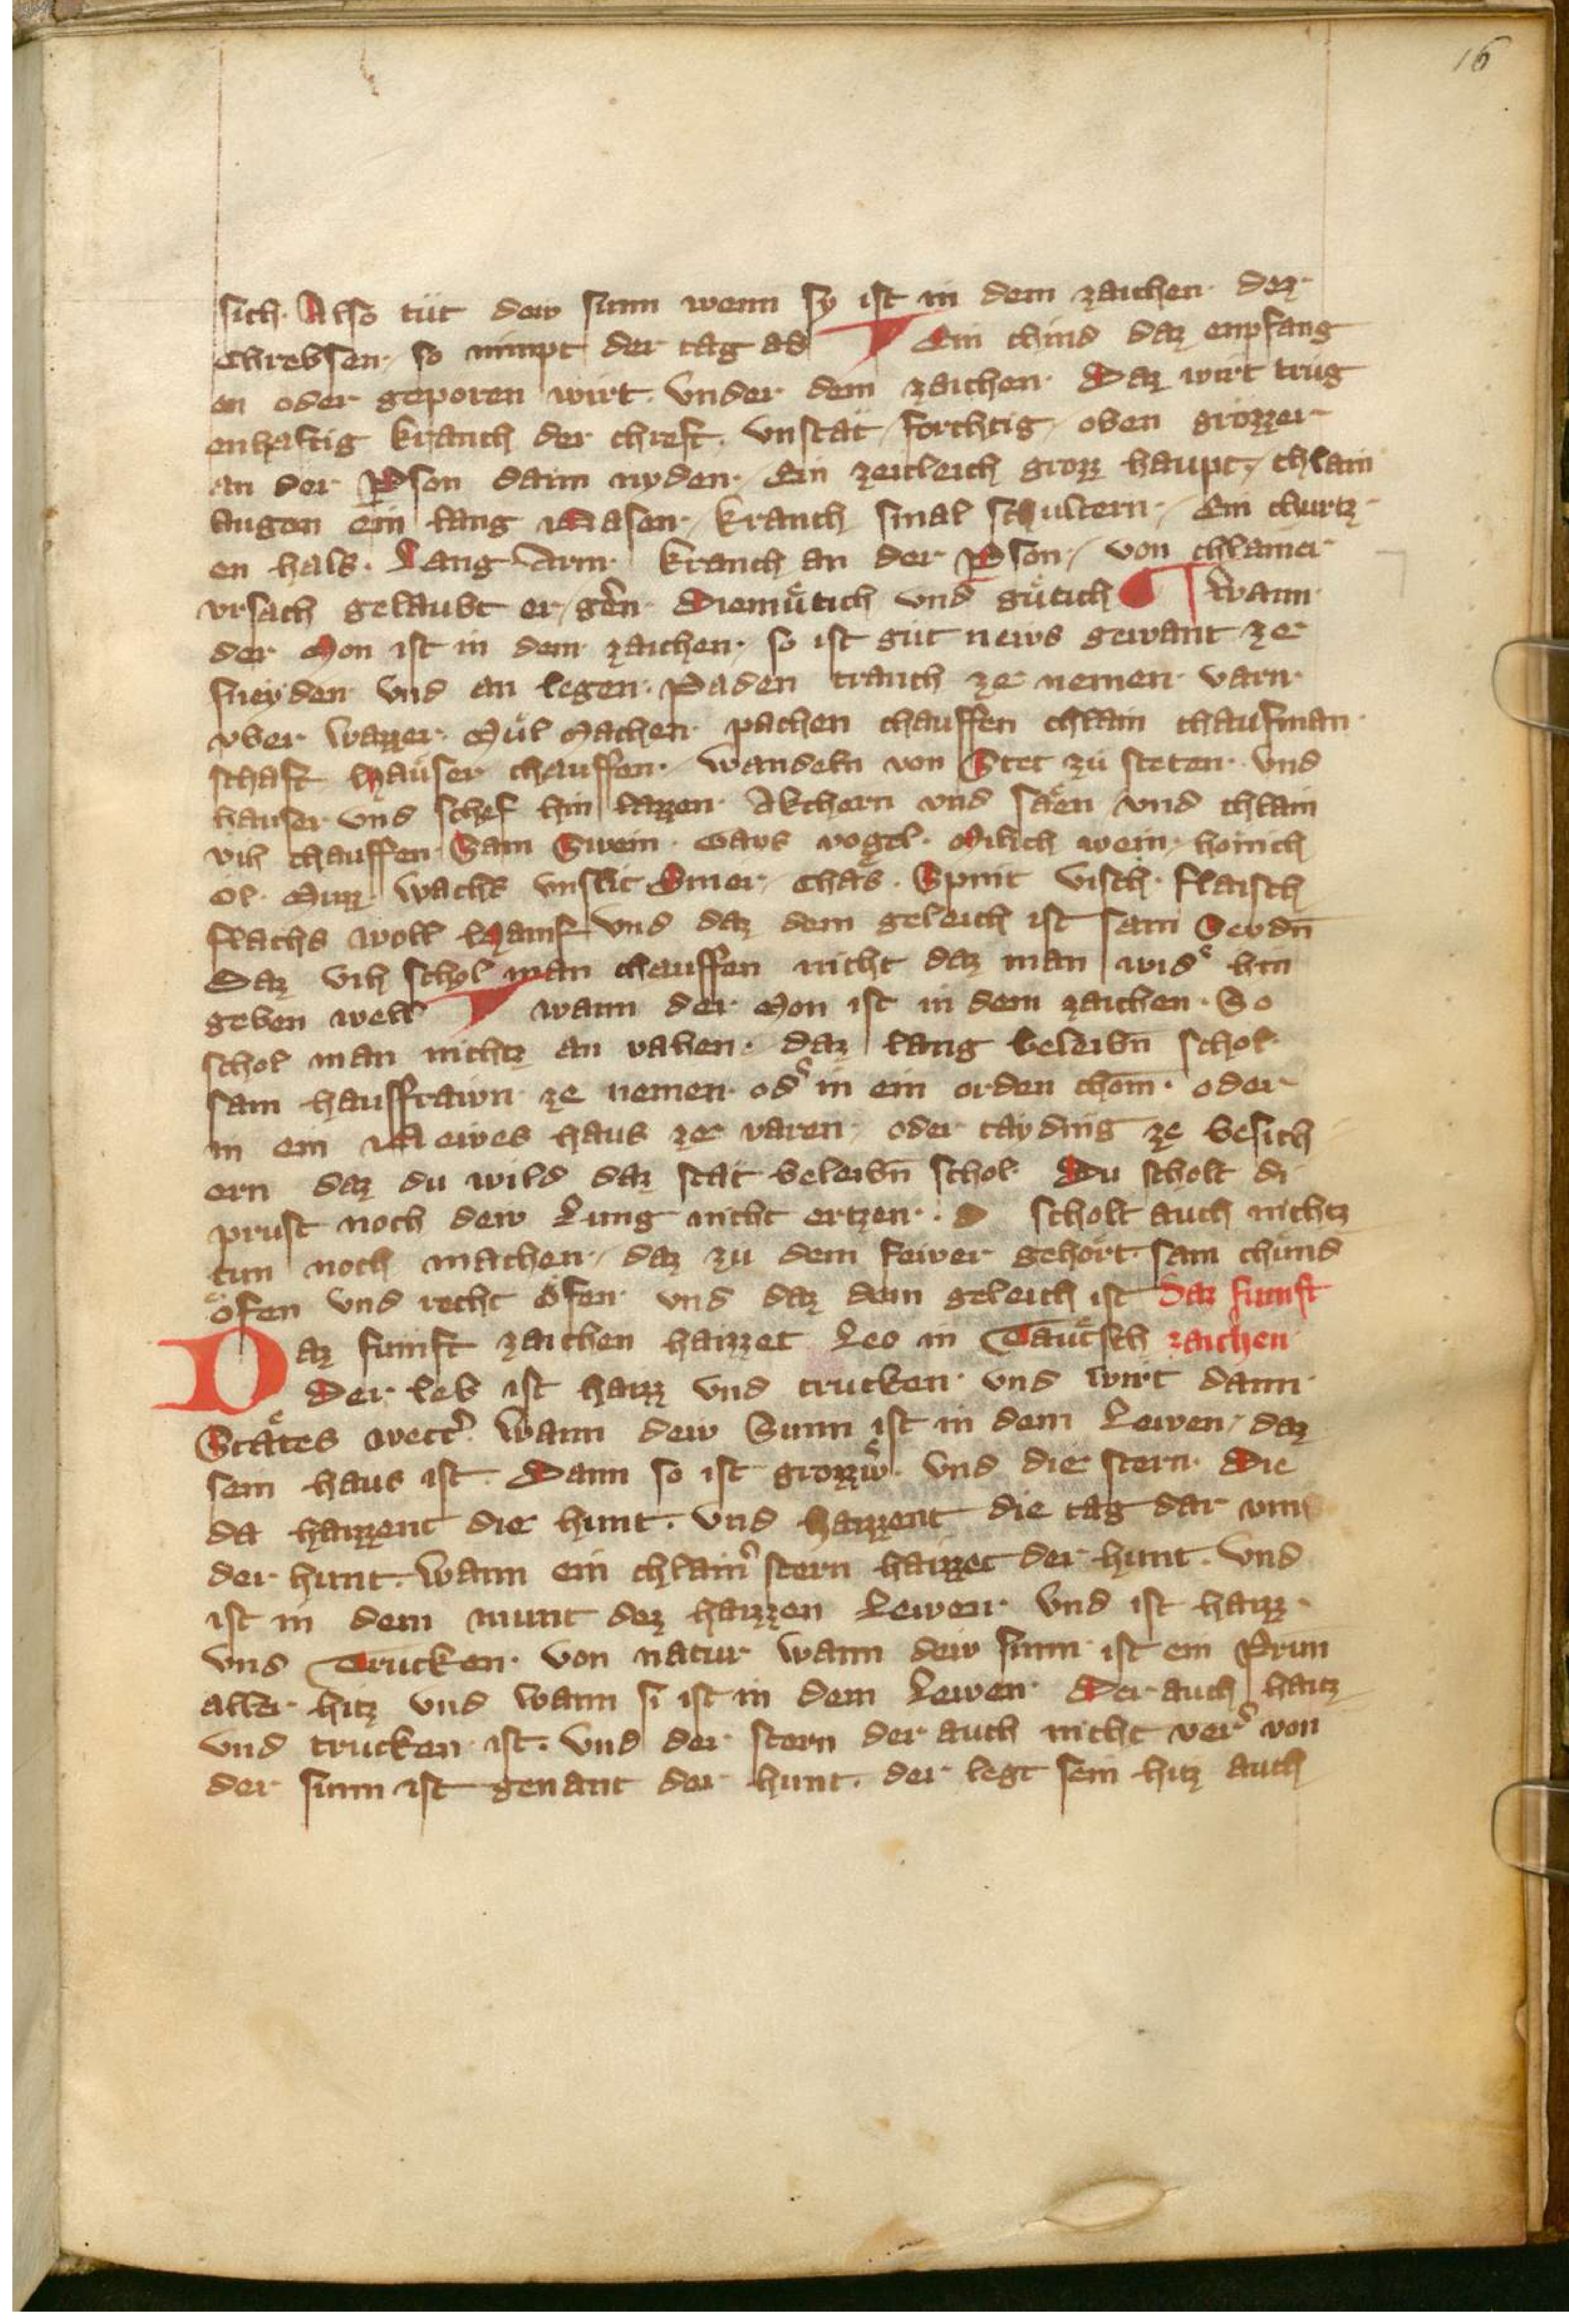 16
sich. Also tüt dew sunn wenn sy ist in dem zaichen dez
Chrebsen, so nimpt der tag ab Ein chind daz enpfang
en oder geporen wirt. vnder dem zaichen. Daz wirt trüg
enhaftig kranch der chreft. vnstät forchtig, oben grözzer
an der pson dann nyden, Ein zeitleich grozz haupt, chlain
augen ein lang Nasen, kranch smal schultern, ein churtz
en hals. Lang Arm kranch an der pson, von chlainer
vrsach gelaubt er, gern diemütich vnd gütich Wann
der Mon ist in dem zaichen, so ist güt news gewant ze
sneyden vnd an legen. Paden tranch ze nemen varn
vber wazzer. Mül Machen pachen chauffen chlain chaufman
schaft Häuser chauffen, wandeln von Stet zü steten vnd
hauser vnd schef hin lazzen Akchern vnd säen vnd chlain
vih chauffen Sam Swein Gays vogel. Milich wein, honich
öl. Muzz wachs vnslit Smer, chäs. Spint visch. flaisch
flachs woll Hanif vnd daz dem geleich ist sam Seydn̄
Daz vih schol man chauffen nicht daz man wid͛ hin
geben well wann der Mon ist in dem zaichen. So
schol man nichtz an vahen. daz lang beleibn̄ schol
sam hausfrawn ze nemen od͛ in ein orden chom̄. oder
in ein Newes haus ze varen, oder tayding ze besich
ern daz du wild daz stät beleibn̄ schol Du scholt di
prust noch dew Lung nicht ertzen. D scholt auch nichtz
tun noch machen, daz zü dem fewer gehört. sam chünd
öfen vnd recht öfen vnd daz dem geleich ist Daz funft
Daz funft zaichen haizzet Leo in Tautsch zaichen
Der leb ist haizz vnd trucken vnd wirt dann
Stätes wett͛. Wann dew Sunn ist in dem Lewen, daz
sein haus ist. Dann so ist grozzw͛. vnd die stern. Die
da haizzent die hunt. vnd haizzent die tag dar vmb
der hunt. wann ein chlain͛ stern haizzet der hunt. vnd
ist in dem munt dez haizzen Lewen vnd ist haizz
vnd Trucken. von natur wann dew sunn ist ein Prun̄
aller hitz vnd wann si ist in dem Lewen Der auch haitz
vnd trucken ist. vnd der stern der auch nicht ver͛ von
der sunn ist genant der hunt. der legt sein hitz auch